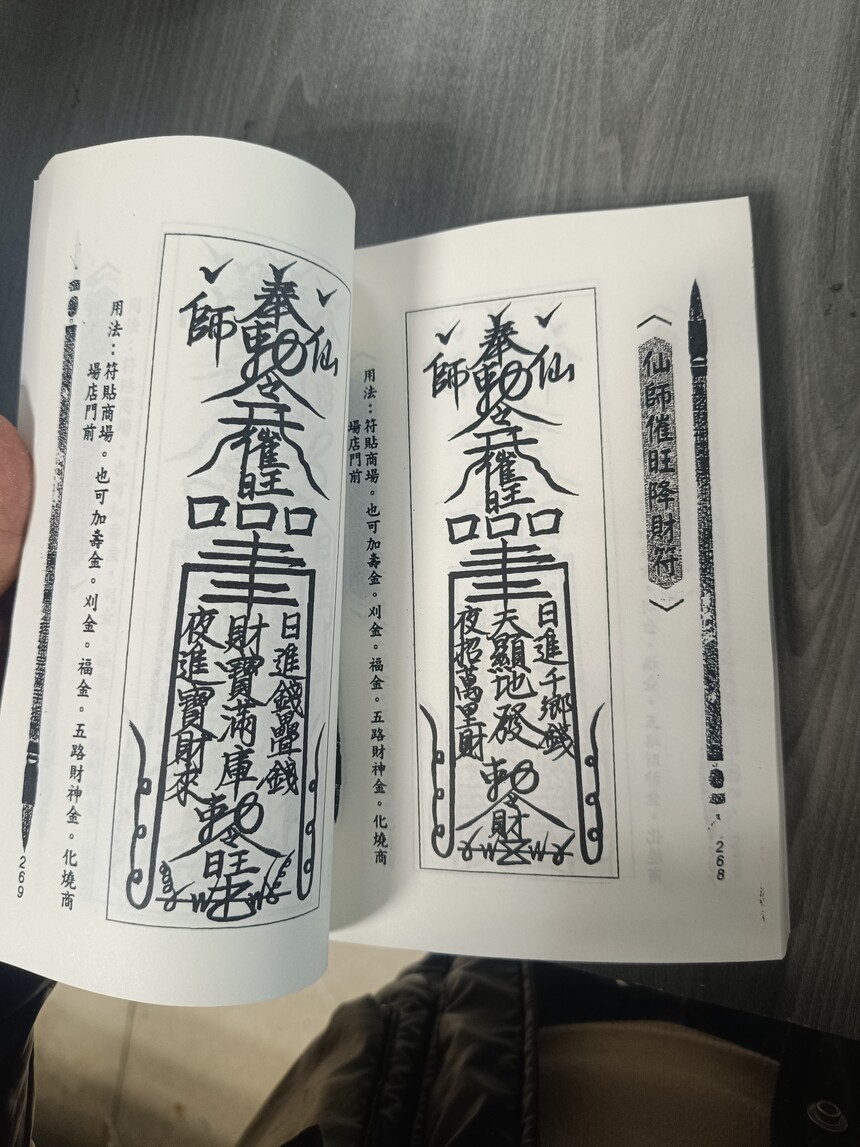 〈仙師催旺降財符〉
268
奉勅令
仙師
催旺
日進千鄉錢
天顯地發
夜招萬里財
勅令
財
用法：符貼商場。也可加壽金。刈金。福金。五路財神金。化燒商
場店門前
奉勅令
仙師
催旺
日進錢疊錢
財寶滿庫
夜進寶財來
勅令
旺
用法：符貼商場。也可加壽金。刈金。福金。五路財神金。化燒商
場店門前
269